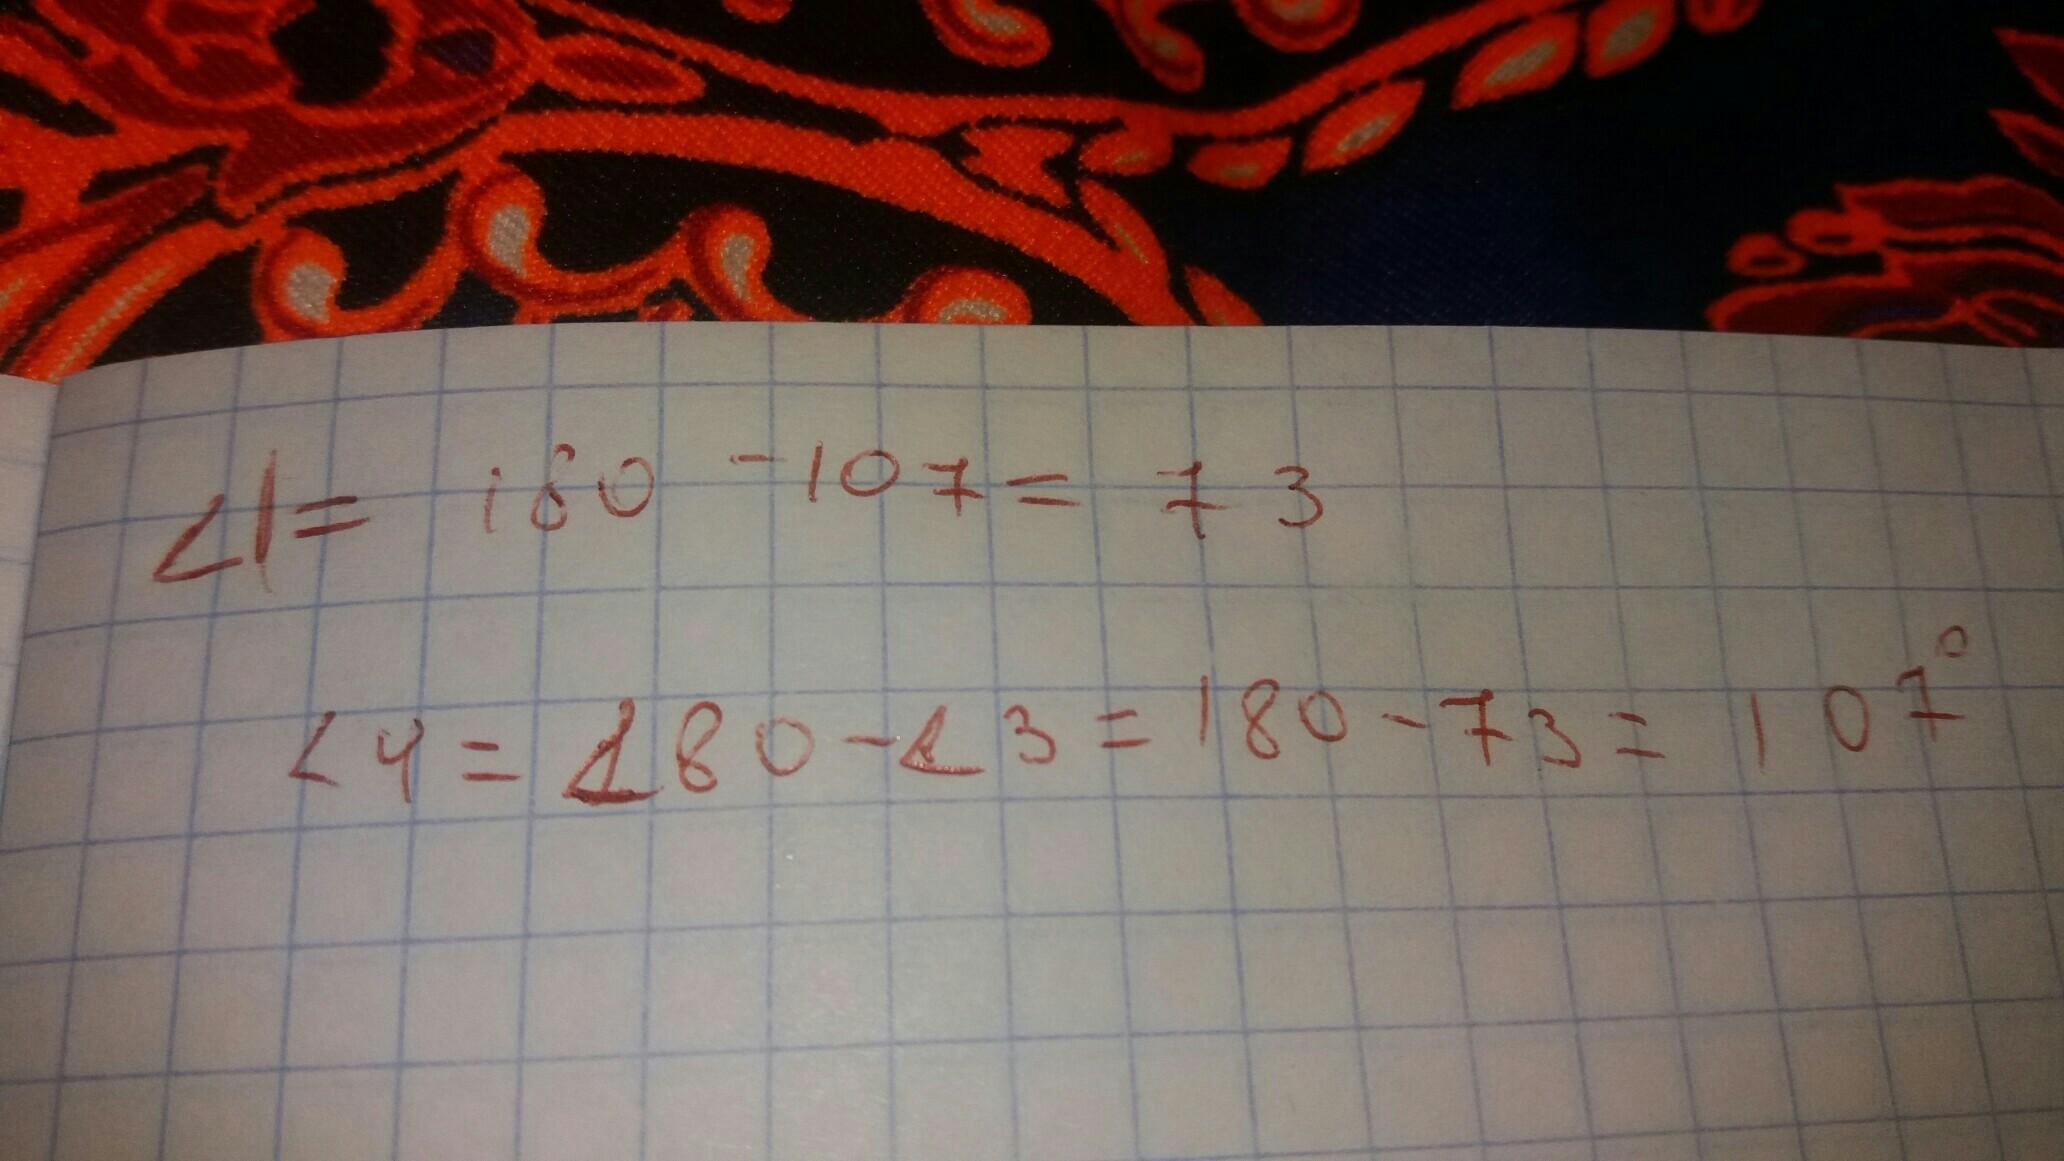 ∠1= 180 -107= 73
∠4= 180-∠3=180-73= 107°